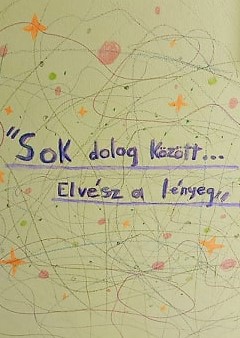 "Sok dolog között...
Elvész a lényeg"